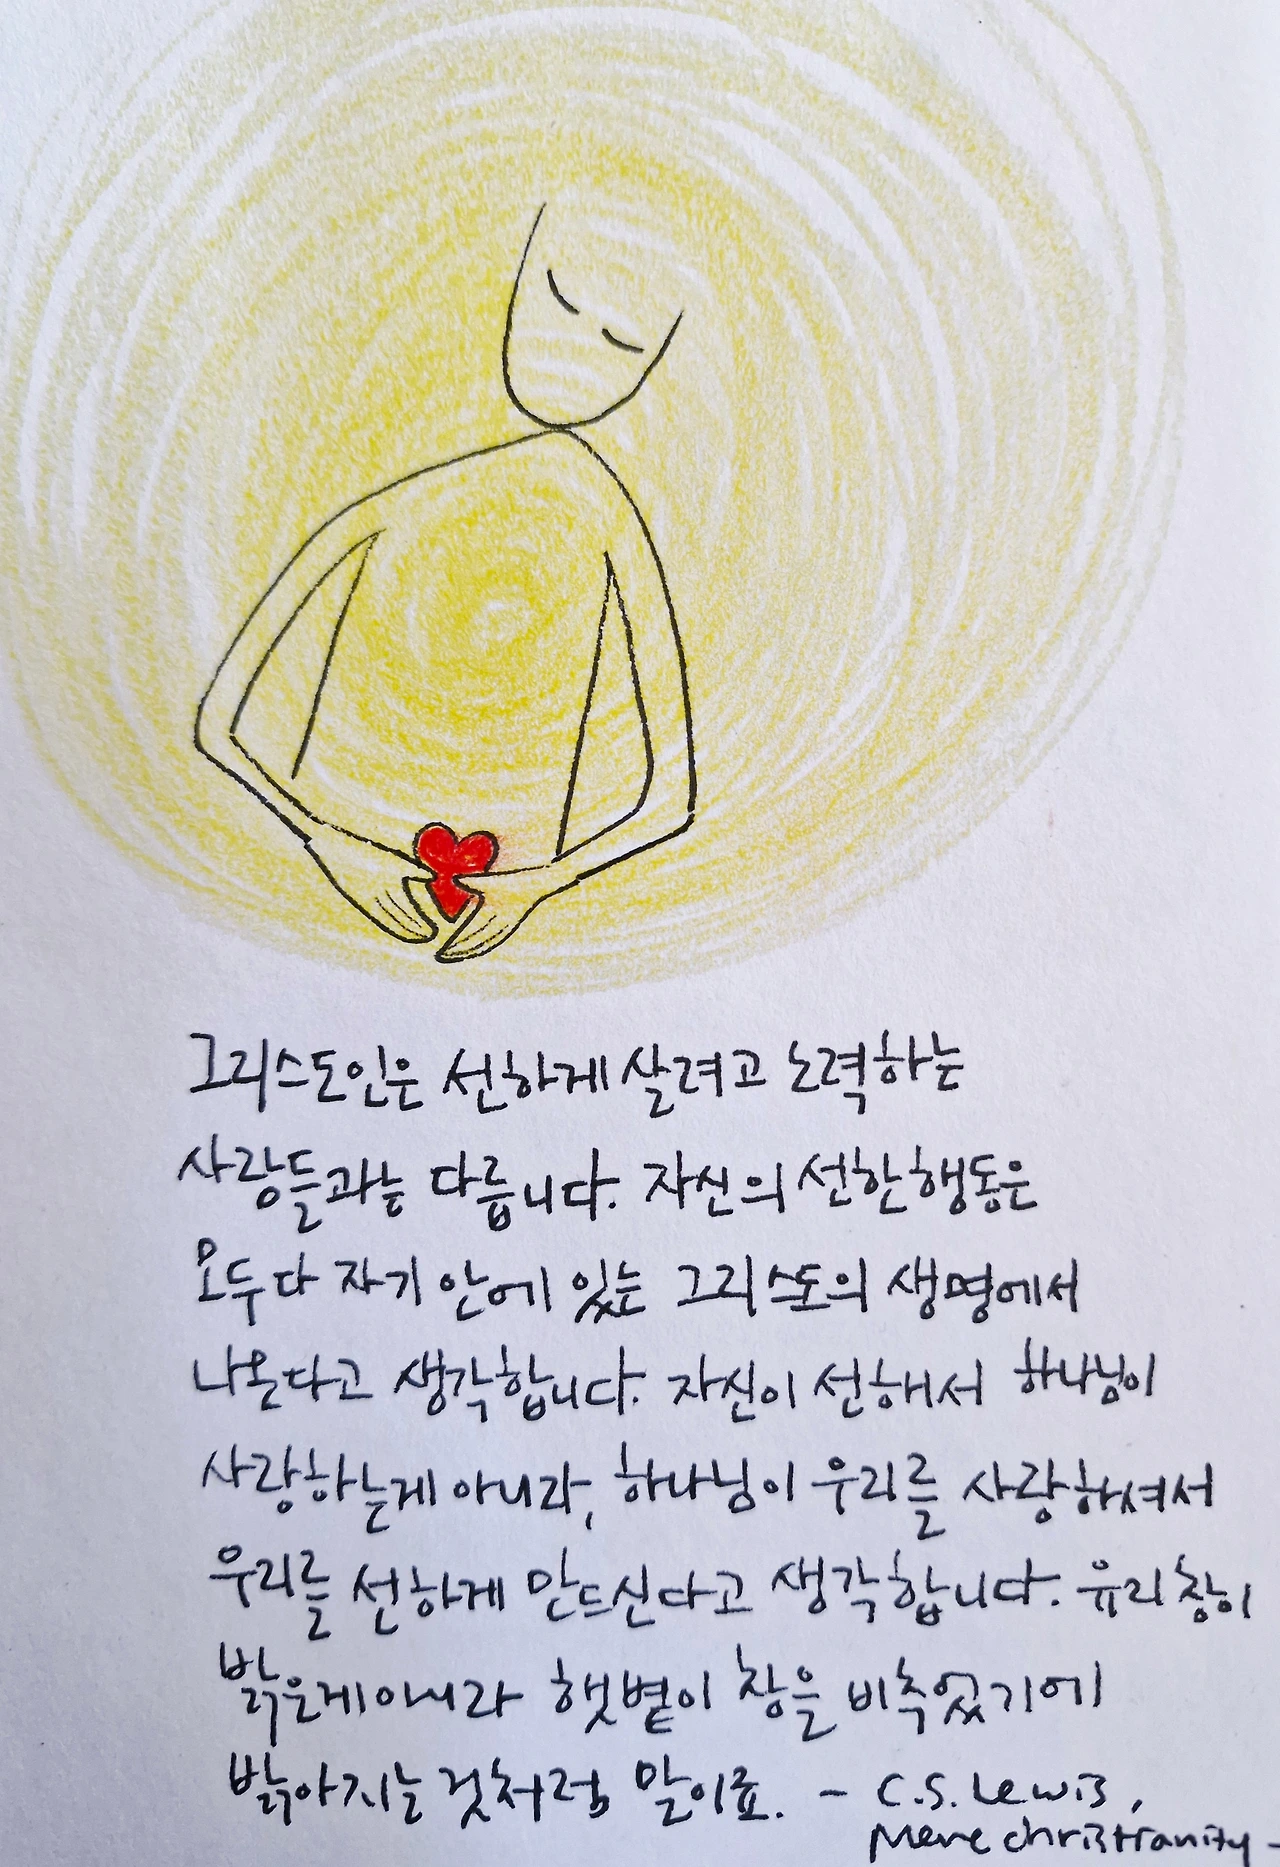 그리스도인은 선하게 살려고 노력하는
사람들과는 다릅니다. 자신의 선한 행동은
모두 다 자기 안에 있는 그리스도의 생명에서
나온다고 생각합니다. 자신이 선해서 하나님이
사랑하는게 아니라, 하나님이 우리를 사랑하셔서
우리를 선하게 만드신다고 생각합니다. 유리창이
밝은게 아니라 햇볕이 창을 비추었기에
밝아지는 것처럼 말이죠. - C.S. Lewis,
Mere Christianity -